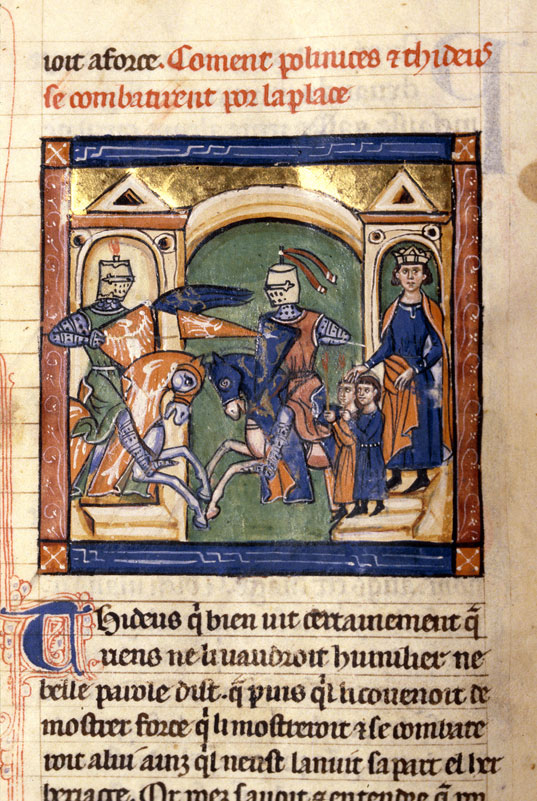 uoit aforce. Coment polinices ⁊ thideus
se combatirent por la place
Thideus q̃ bien uit certainement q̃
riens ne li uaudroit humilier ne
belle parole dist. q̃ puis ql̃ li couenoit de
mostrer force q̃ li mostreroit ⁊ se combate
roit a lui ainz ql̃ neust la nuit sa part el her
berjage. Or mes sauoir ⁊ entendre q̃